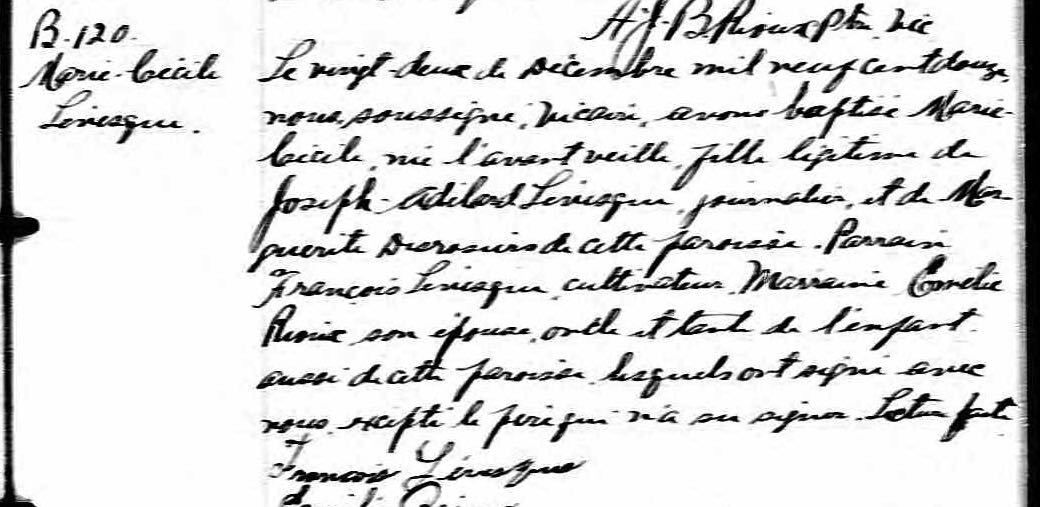 A.J. B Rioux Ptre. Vic
B-120.
Marie-Cécile
Lévesque.
Le vingt-deux de Décembre mil neuf cent douze,
nous, soussigné, Vicaire, avons baptisé Marie-
Cécile, née l'avant veille, fille légitime de
Joseph-Adélard Lévesque, journalier, et de Mar-
guerite Desrosiers de cette paroisse. Parrain
François Lévesque, cultivateur, Marraine, Emélie
Rioux son épouse, oncle et tante de l'enfant
aussi de cette paroisse lesquels ont signé avec
nous, excepté le père qui n'a su signer. Lecture faite
François Lévesque